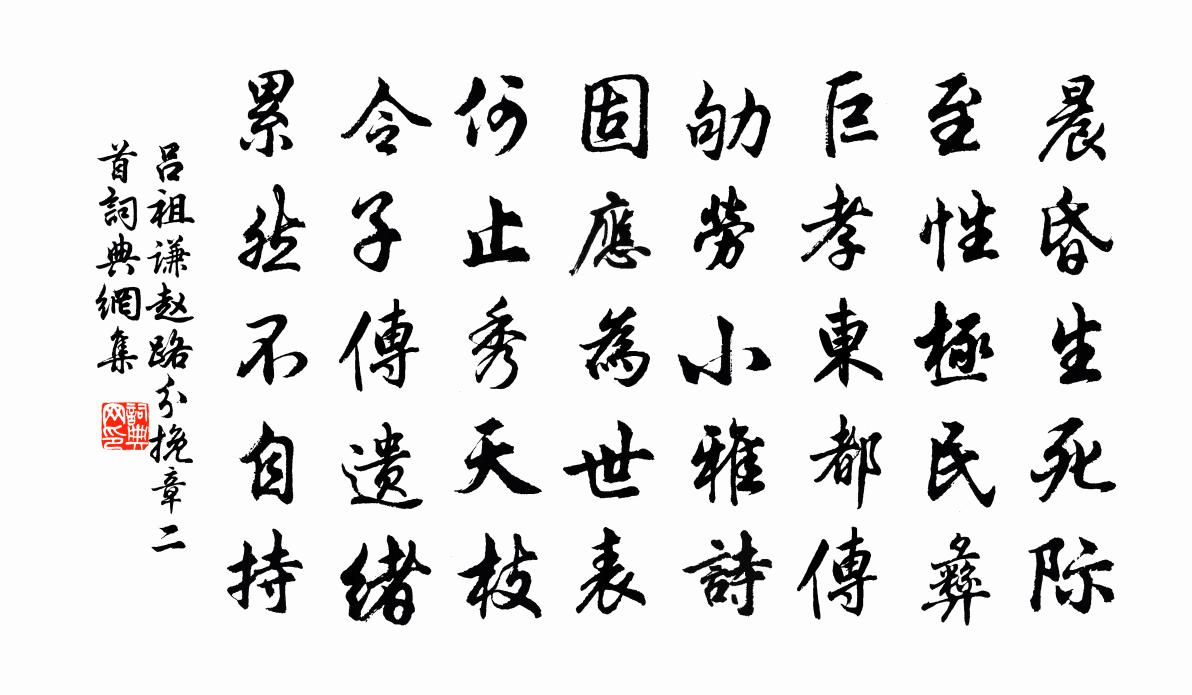 晨昏生死际
至性極民彝
巨孝東都傳
劬勞小雅詩
固應為世表
何止秀天枝
令子傳遺緒
累然不自持
吕祖谦赵路分挽章二
首詞典網集
詞典网印